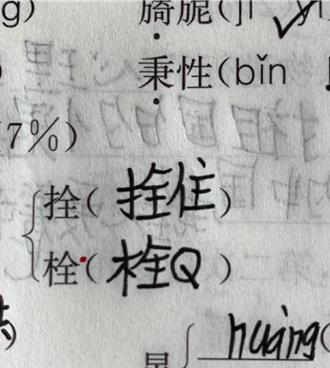 g) 旖旎(jī
秉性(bǐn
7%)
拴(拴住)
栓(栓Q)
huáng(